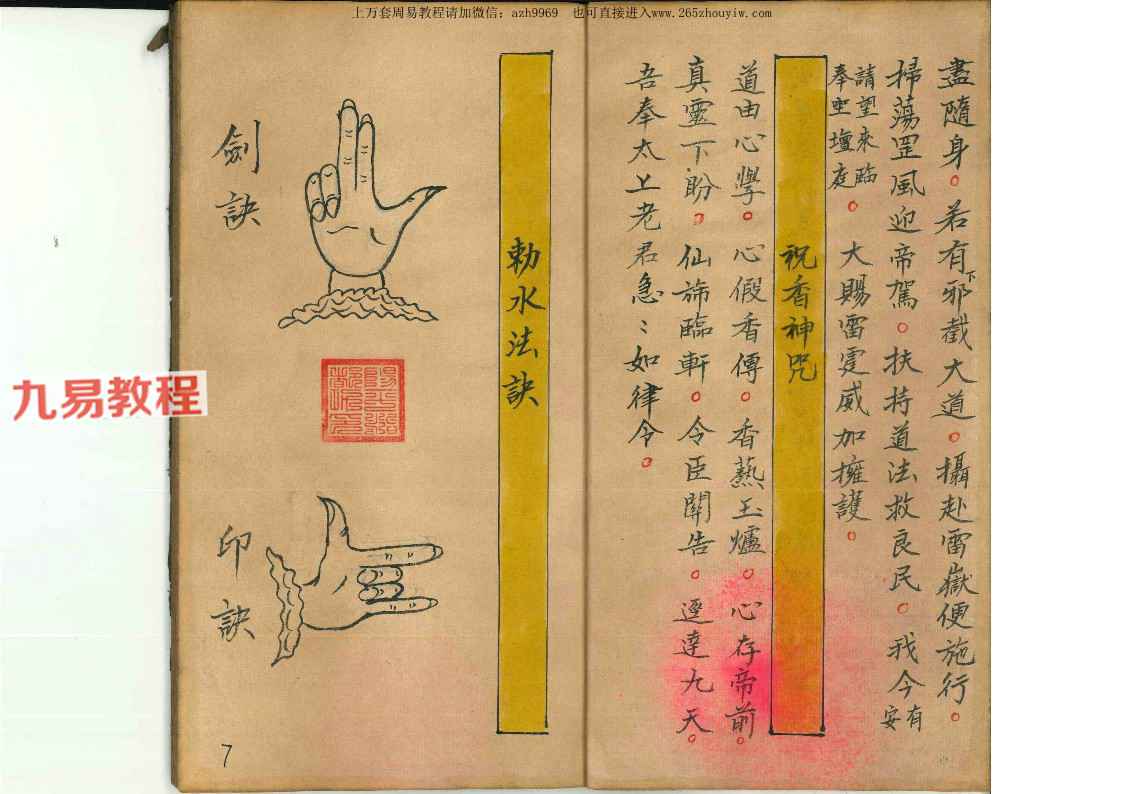 上万套周易教程请加微信：azh9969 也可直接进入www.265zhouyiw.com
盡隨身。若有下邪截大道。攝赴雷嶽便施行。
掃蕩罡風迎帝駕。扶持道法救良民。我今有安
請望來臨
奉坐壇庭。大賜雷霆威加擁護。
祝香神咒
道由心學。心假香傳。香爇玉爐。心存帝前。
真靈下盼。仙旆臨軒。令臣關告。逕達九天。
吾奉太上老君急〻如律令。
勅水法訣
劍訣
印訣
九易教程
7